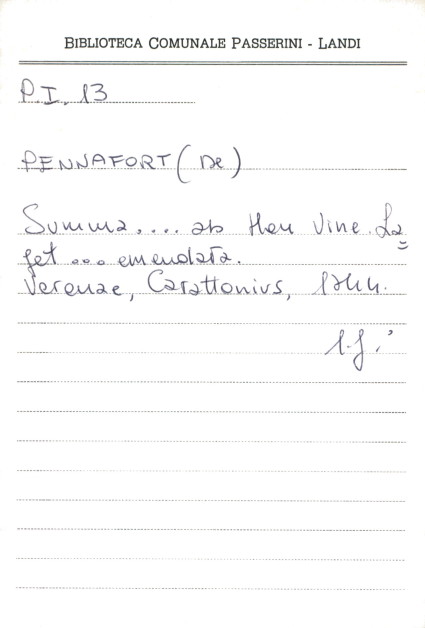 BIBLIOTECA COMUNALE PASSERINI - LANDI
P.I. 13
PENNAFORT (De)
Summa.... ab Hon Vinc. La=
get ... emendata.
Veronae, Carattonius, 1744.